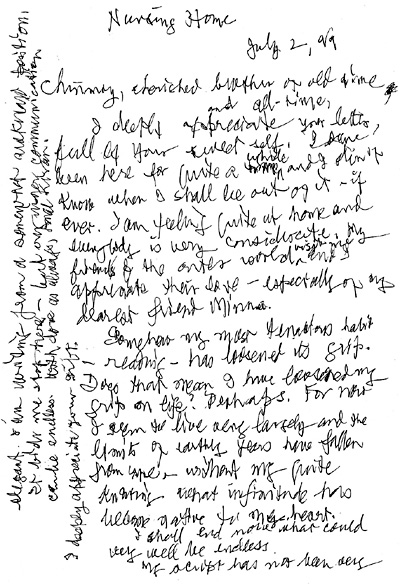 Nursing Home
July 2, 99
Chinmoy, cherished brother of old time
and all-time,
I deeply appreciate your letter,
full of your sweet self. I have
been here for quite a while and I don't
know when I shall be out of it – if
ever. I am feeling quite at home and
everybody is very considerate. My
friends of the outer world and I
appreciate their love – especially of my
dearest friend Minna.
Somehow my most tenacious habit
reading – has loosened its grip.
Does that mean I have loosened my
grip on life? Perhaps. For now
I seem to live very largely and the
limits of earthly years have fallen
from me – without my quite
knowing what infinitude has
become native to my heart.
I shall end now what could
very well be endless.
My script has not been very
elegant. I am writing from a somewhat awkward position.
It bids me stop here – but our inner communication
can be endless. With love as always
I deeply appreciate your gift.